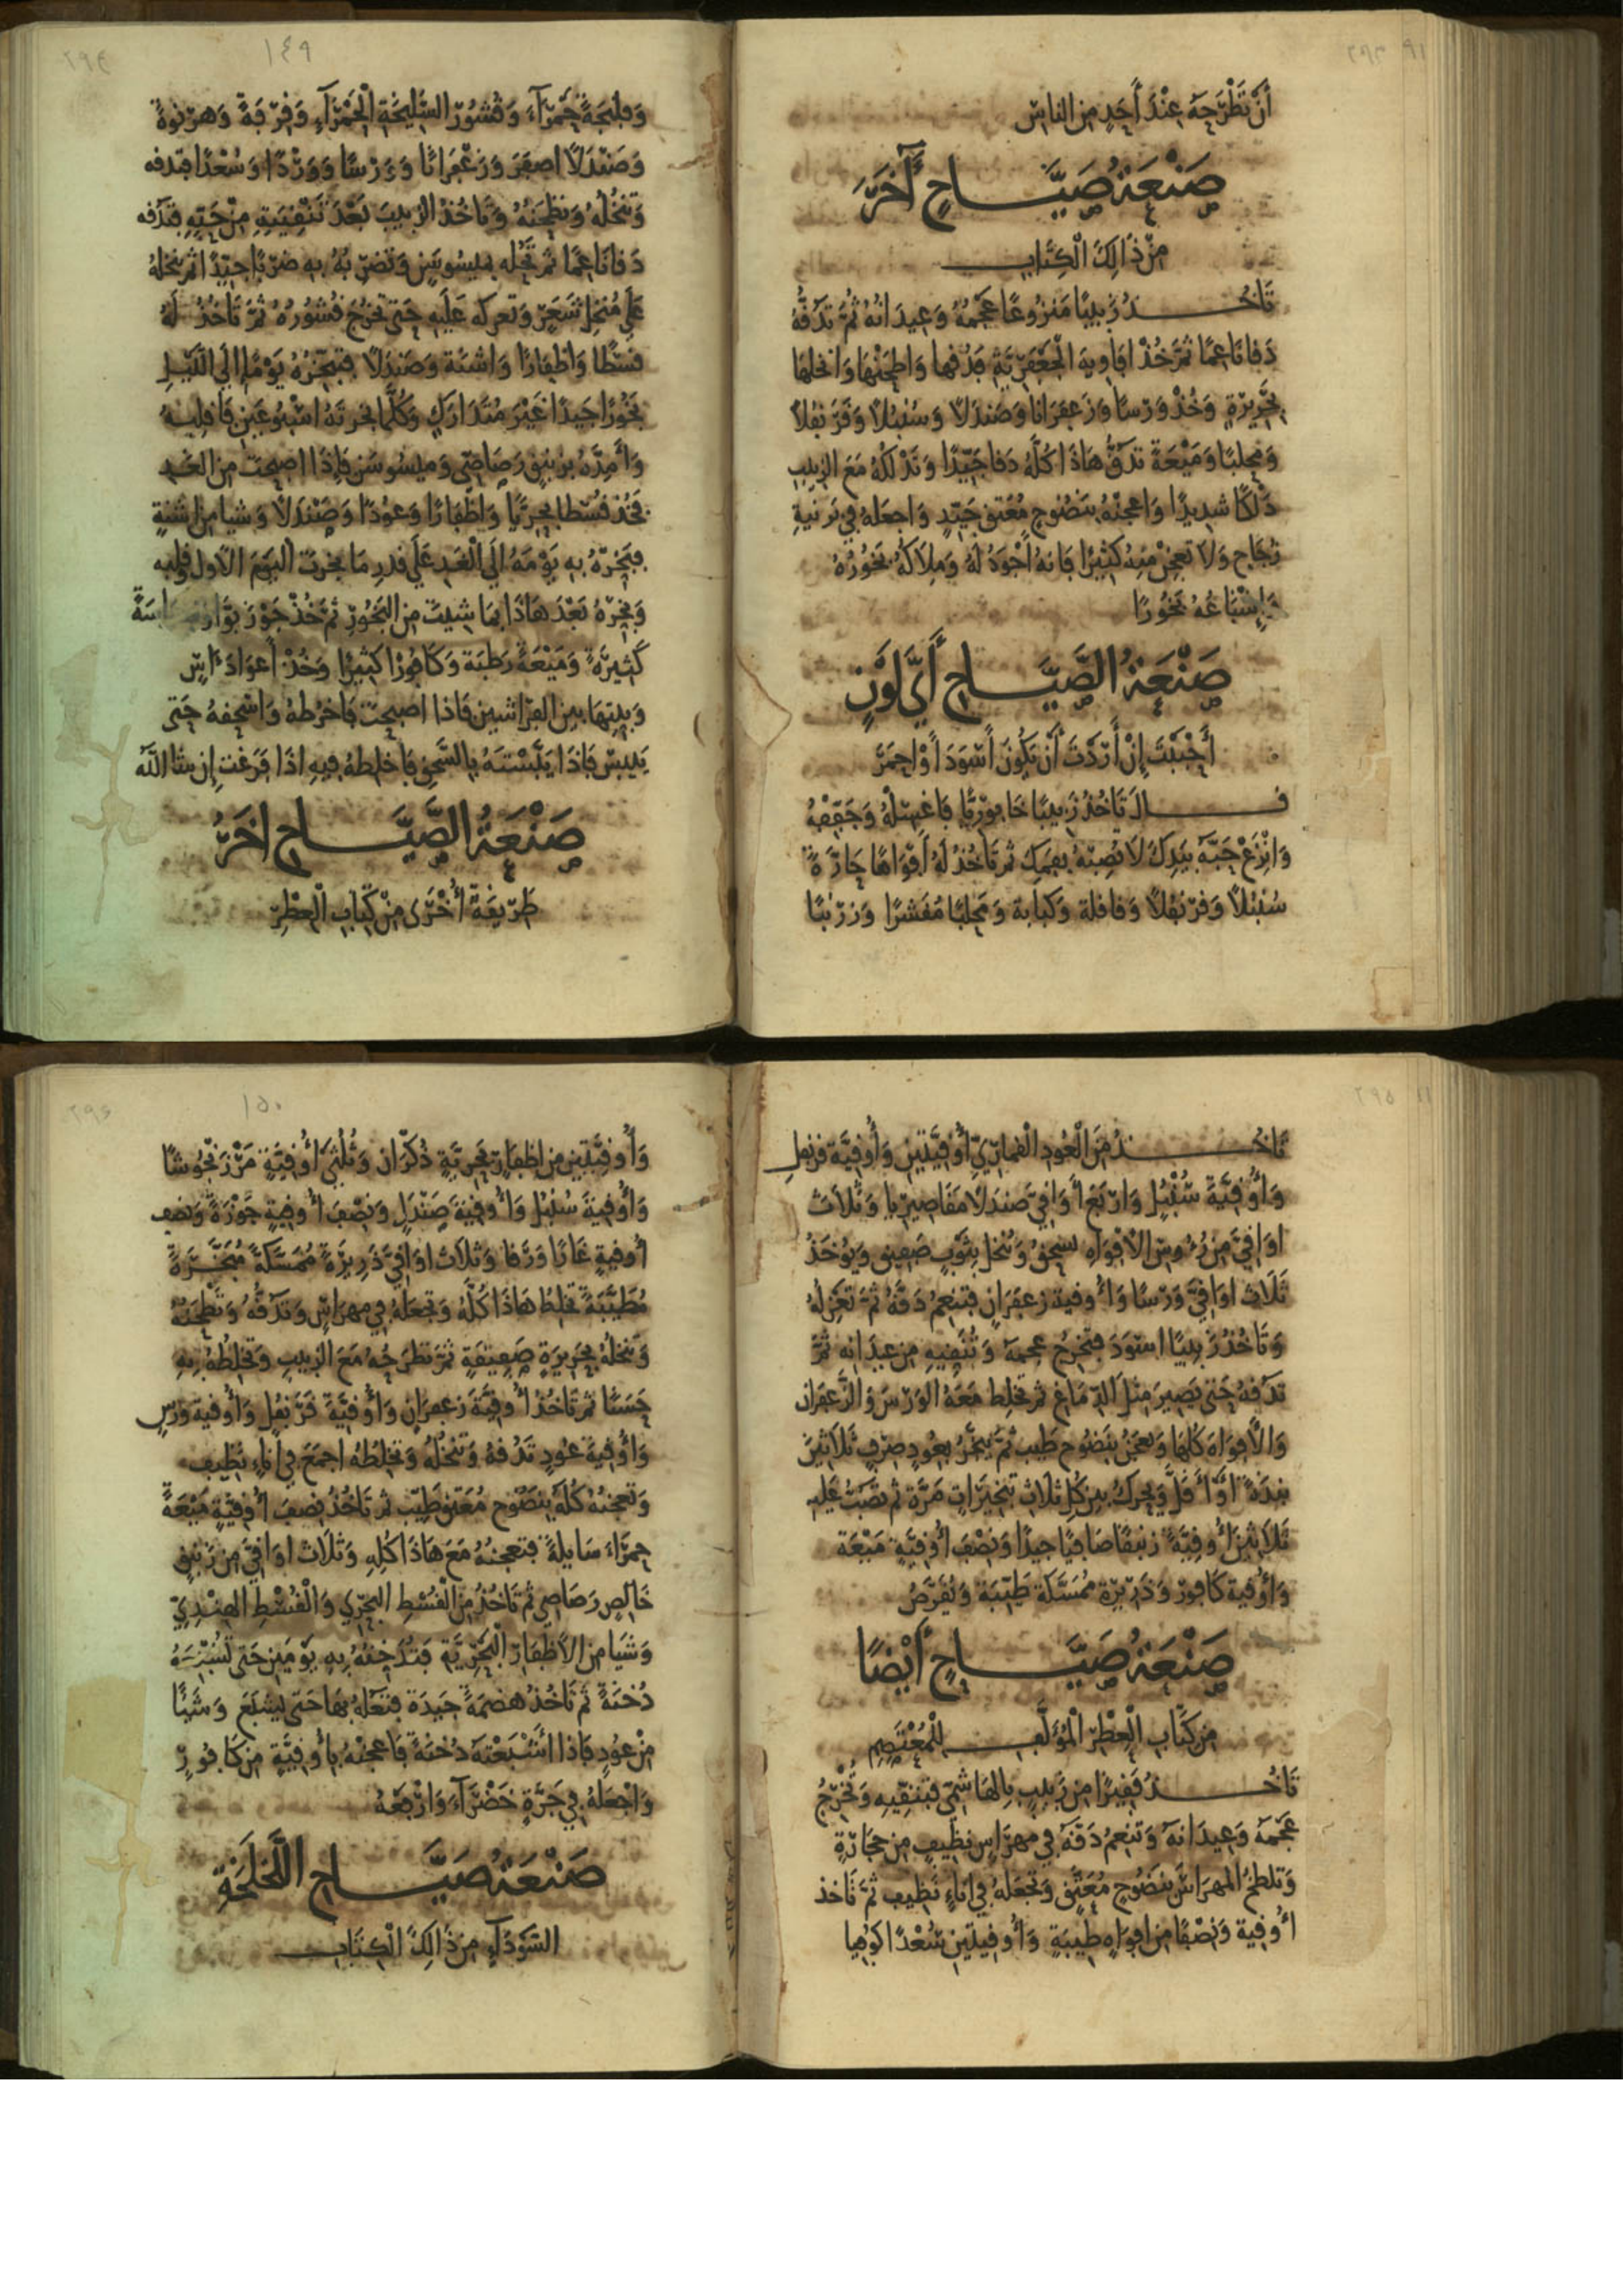 أَنْ تَطْرَحَهُ عِنْدَ أَحَدٍ مِنَ النَّاسِ
صَنْعَةُ صَيَّاحٍ آخَرَ
مِنْ ذَالِكَ الْكِتَابِ
تَاخُذُ زَبِيبًا مَنْزُوعًا عَجَمُهُ وَعِيدَانُهُ ثُمَّ تَدُقُّهُ
دَقًّا نَاعِمًا ثُمَّ خُذْ افَاوِيهَ الْجَعْفَرِيَّةِ فَدُقَّهَا وَاطْحَنْهَا وَانْخُلْهَا
بِحَرِيرَةٍ وَخُذْ وَرْسًا وَزَعْفَرَانًا وَصَنْدَلًا وَسُنْبُلًا وَقَرَنْفُلًا
وَمَحْلَبًا وَمَيْعَةً تَدُقُّ هَاذَا كُلَّهُ دَقًّا جَيِّدًا وَتَدْلُكُهُ مَعَ الزَّبِيبِ
دَلْكًا شَدِيدًا وَاعْجِنْهُ بِنَضُوحٍ مُعَتَّقٍ جَيِّدٍ وَاجْعَلْهُ فِي بَرْنِيَّةِ
زُجَاجٍ وَلَا تَعْجِنْ مِنْهُ كَثِيرًا فَانَّهُ أَجْوَدُ لَهُ وَمِلَاكُهُ بَخُورُهُ
وَإِشْبَاعُهُ بَخُورًا
صَنْعَةُ الصَّيَّاحِ أَيَّ لَوْنٍ
أَحْبَبْتَ إِنْ أَرَدْتَ أَنْ يَكُونَ أَسْوَدَ أَوْ احْمَرَ
قَالَ تَاخُذُ زَبِيبًا خَابُورِيًّا فَاغْسِلْهُ وَجَفِّفْهُ
وَانْزَعْ حَبَّهُ بِيَدِكَ لَا تُصِبْهُ بِفَمِكَ ثُمَّ تَاخُذُ لَهُ أَفْوَاهًا حَارَّةً
سُنْبُلًا وَقَرَنْفُلًا وَقَاقُلَةً وَكَبَابَةً وَمَحْلَبًا مُقَشَّرًا وَزَرْنَبًا
١٤٩
٢٩٤
وَفُلَيْجَةً حَمْرَآءَ وَقُشُورَ السَّلِيخَةِ الْحَمْرَآءِ وَقِرْفَةً وَهَرْنُوَةً
وَصَنْدَلًا اصْفَرَ وَزَعْفَرَانًا وَوَرْسًا وَوَرْدًا وَسُعْدًا فَتَدُقُّهُ
وَتَنْخُلُهُ وَتَطْحَنُهُ وَتَاخُذُ الزَّبِيبَ بَعْدَ تَنْقِيَتِهِ مِنْ حَبِّهِ فَتَدُقُّهُ
دَقًّا نَاعِمًا ثُمَّ تَحُلُّهُ بِمَيْسُوسَنٍ وَتَضْرِبُهُ بِهِ ضَرْبًا جَيِّدًا ثُمَّ تَنْخُلُهُ
عَلَى مُنْخُلِ شَعَرٍ وَتَعْرُكُهُ عَلَيْهِ حَتَّى تَخْرُجَ قُشُورُهُ ثُمَّ تَاخُذُ لَهُ
قُسْطًا وَاظْفَارًا وَاشْنَةً وَصَنْدَلًا فَتُبَخِّرُهُ يَوْمًا إِلَى اللَّيْلِ
بَخُورًا جَيِّدًا غَيْرَ مُتَدَارَكٍ وَكُلَّمَا بَخَّرْتَهُ اسْبُوعَيْنِ فَاقْلِبْهُ
وَأَمِدَّهُ بِزَنْبَقٍ رَصَاصِيٍّ وَمَيْسُوسَنٍ فَإِذَا اصْبَحْتَ مِنَ الْغَدِ
فَخُذْ قُسْطًا بَحْرِيًّا وَاظْفَارًا وَعُودًا وَصَنْدَلًا وَشَيًا مِنْ اشْنَةٍ
فَبَخِّرْهُ بِهِ يَوْمَهُ إِلَى الْغَدِ عَلَى قَدْرِ مَا بَخَّرْتَ الْيَوْمَ الْأَوَّلَ
وَبَخِّرْهُ بَعْدَ هَاذَا بِمَا شِيتَ مِنَ الْبَخُورِ ثُمَّ خُذْ جَوْزَ بَوَّا
كَثِيرَةً وَمَيْعَةً رَطْبَةً وَكَافُورًا كَثِيرًا وَخُذْ أَعْوَادَ آسٍ
وَبَيِّتْهَا بَيْنَ الْفِرَاشَيْنِ فَاذَا اصْبَحْتَ فَاخْرُطْهُ وَاسْحَقْهُ حَتَّى
يَيْبَسَ فَاذَا يَبَّسْتَهُ بِالسَّحْقِ فَاخْلِطْهُ فِيهِ اذَا فَرَغْتَ إِنْ شَا اللَّهُ
صَنْعَةُ الصَّيَّاحِ اخَرُ
طَرِيقَةً أُخْرَى مِنْ كِتَابِ الْعِطْرِ
٢٩٥
تَاخُذُ مِنَ الْعُودِ الْقَمَارِيِّ أُوقِيَّتَيْنِ وَأُوقِيَّةَ قَرَنْفُلٍ
وَأُوقِيَّةَ سُنْبُلٍ وَارْبَعَ أَوَاقِيَّ صَنْدَلًا مَقَاصِيرِيًّا وَثَلَاثَ
اوَاقِيَّ مِنْ رُءُوسِ الْأَفْوَاهِ تُسْحَقُ وَتُنْخَلُ بِثَوْبٍ صَفِيقٍ وَيُوْخَذُ
ثَلَاثُ اوَاقِيَّ وَرْسًا وَأُوقِيَّةُ زَعْفَرَانٍ فَتُنْعِمُ دَقَّهُ ثُمَّ تَعْزِلُهُ
وَتَاخُذُ زَبِيبًا اسْوَدَ فَتُخْرِجُ عَجَمَهُ وَتُنَقِّيهِ مِنْ عِيدَانِهِ ثُمَّ
تَدُقُّهُ حَتَّى يَصِيرَ مِثْلَ الدِّمَاغِ ثُمَّ تَخْلِطُ مَعَهُ الْوَرْسَ وَالزَّعْفَرَانَ
وَالْأَفْوَاهَ كُلَّهَا وَتَعْجِنُ بِنَضُوحٍ طَيِّبٍ ثُمَّ تُبَخَّرُ بِعُودٍ صِرْفٍ ثَلَاثِينَ
نَبْذَةً أَوْ أَقَلَّ وَيُحَرَّكُ بَيْنَ كُلِّ ثَلَاثِ تَبْخِيرَاتٍ مَرَّةً ثُمَّ تَصُبُّ عَلَيْهِ
ثَلَاثِينَ أُوقِيَّةً زَنْبَقًا صَافِيًا جَيِّدًا وَنِصْفَ أُوقِيَّةٍ مَيْعَةً
وَأُوقِيَّةَ كَافُورٍ وَذَرِيرَةً مُمَسَّكَةً طَيِّبَةً وَيُقَرَّصُ
صَنْعَةُ صَيَّاحٍ أَيْضًا
مِنْ كِتَابِ الْعِطْرِ الْمُؤَلَّفِ لِلْمُعْتَصِمِ
تَاخُذُ قَفِيزًا مِنْ زَبِيبٍ بِالْهَاشِمِيِّ فَتُنَقِّيهِ وَتُخْرِجُ
عَجَمَهُ وَعِيدَانَهُ وَتُنْعِمُ دَقَّهُ فِي مِهْرَاسٍ نَظِيفٍ مِنْ حِجَارَةٍ
وَتُلَطِّخُ الْمِهْرَاسَ بِنَضُوحٍ مُعَتَّقٍ وَتَجْعَلُهُ فِي انَاءٍ نَظِيفٍ ثُمَّ تَاخُذُ
أُوقِيَّةً وَنِصْفًا مِنْ افْوَاهٍ طَيِّبَةٍ وَأُوقِيَّتَيْنِ سُعْدًا كُوفِيًا
١٥٠
٢٩٦
وَأُوقِيَّتَيْنِ مِنْ اظْفَارٍ بَحْرِيَّةٍ ذُكْرَانٍ وَثُلُثَيْ أُوقِيَّةٍ مَرْزَنْجُوشًا
وَأُوقِيَّةَ سُنْبُلٍ وَأُوقِيَّةَ صَنْدَلٍ وَنِصْفَ أُوقِيَّةٍ جَوْزَةً وَنِصْفَ
أُوقِيَّةٍ غَارًا وَرَقًا وَثَلَاثَ اوَاقِيَّ ذَرِيرَةً مُمَسَّكَةً مُبَخَّرَةً
مُطَيَّبَةً تَخْلِطُ هَاذَا كُلَّهُ وَتَجْعَلُهُ فِي مِهْرَاسٍ وَتَدُقُّهُ وَتَطْحَنُهُ
وَتَنْخُلُهُ بِحَرِيرَةٍ صَفِيقَةٍ ثُمَّ تَطْرَحُهُ مَعَ الزَّبِيبِ وَتَخْلِطُهُ بِهِ
حَسَنًا ثُمَّ تَاخُذُ أُوقِيَّةَ زَعْفَرَانٍ وَأُوقِيَّةَ قَرَنْفُلٍ وَأُوقِيَّةَ وَرْسٍ
وَأُوقِيَّةَ عُودٍ تَدُقُّهُ وَتَنْخُلُهُ وَتَخْلِطُهُ اجْمَعَ فِي انَاءٍ نَظِيفٍ
وَتَعْجِنُهُ كُلَّهُ بِنَضُوحٍ مُعَتَّقٍ طَيِّبٍ ثُمَّ تَاخُذُ نِصْفَ أُوقِيَّةٍ مَيْعَةً
حَمْرَاءَ سَايِلَةً فَتَعْجِنُهُ مَعَ هَاذَا كُلِّهِ وَثَلَاثَ اوَاقِيَّ مِنْ زَنْبَقٍ
خَالِصٍ رَصَاصِيٍّ ثُمَّ تَاخُذُ مِنَ الْقُسْطِ الْبَحْرِيِّ وَالْقُسْطِ الْهِنْدِيِّ
وَشَيَا مِنَ الْأَظْفَارِ الْبَحْرِيَّةِ فَتُدَخِّنُهُ بِهِ يَوْمَيْنِ حَتَّى
دُخْنَةً ثُمَّ تَاخُذُ هَضَمَةً جَيِّدَةً بِهَا حَتَّى يَشْبَعَ وَشَيْئًا
مِنْ عُودٍ فَاذَا اشْبَعْتَهُ دُخْنَةً فَاعْجِنْهُ بِأُوقِيَّةٍ مِنْ كَافُورٍ
وَاجْعَلْهُ فِي جَرَّةٍ خَضْرَآءَ وَارْفَعْهُ
صَنْعَةُ صَيَّاحِ اللَّخْلَخَةِ
السَّوْدَآءِ مِنْ ذَالِكَ الْكِتَابِ